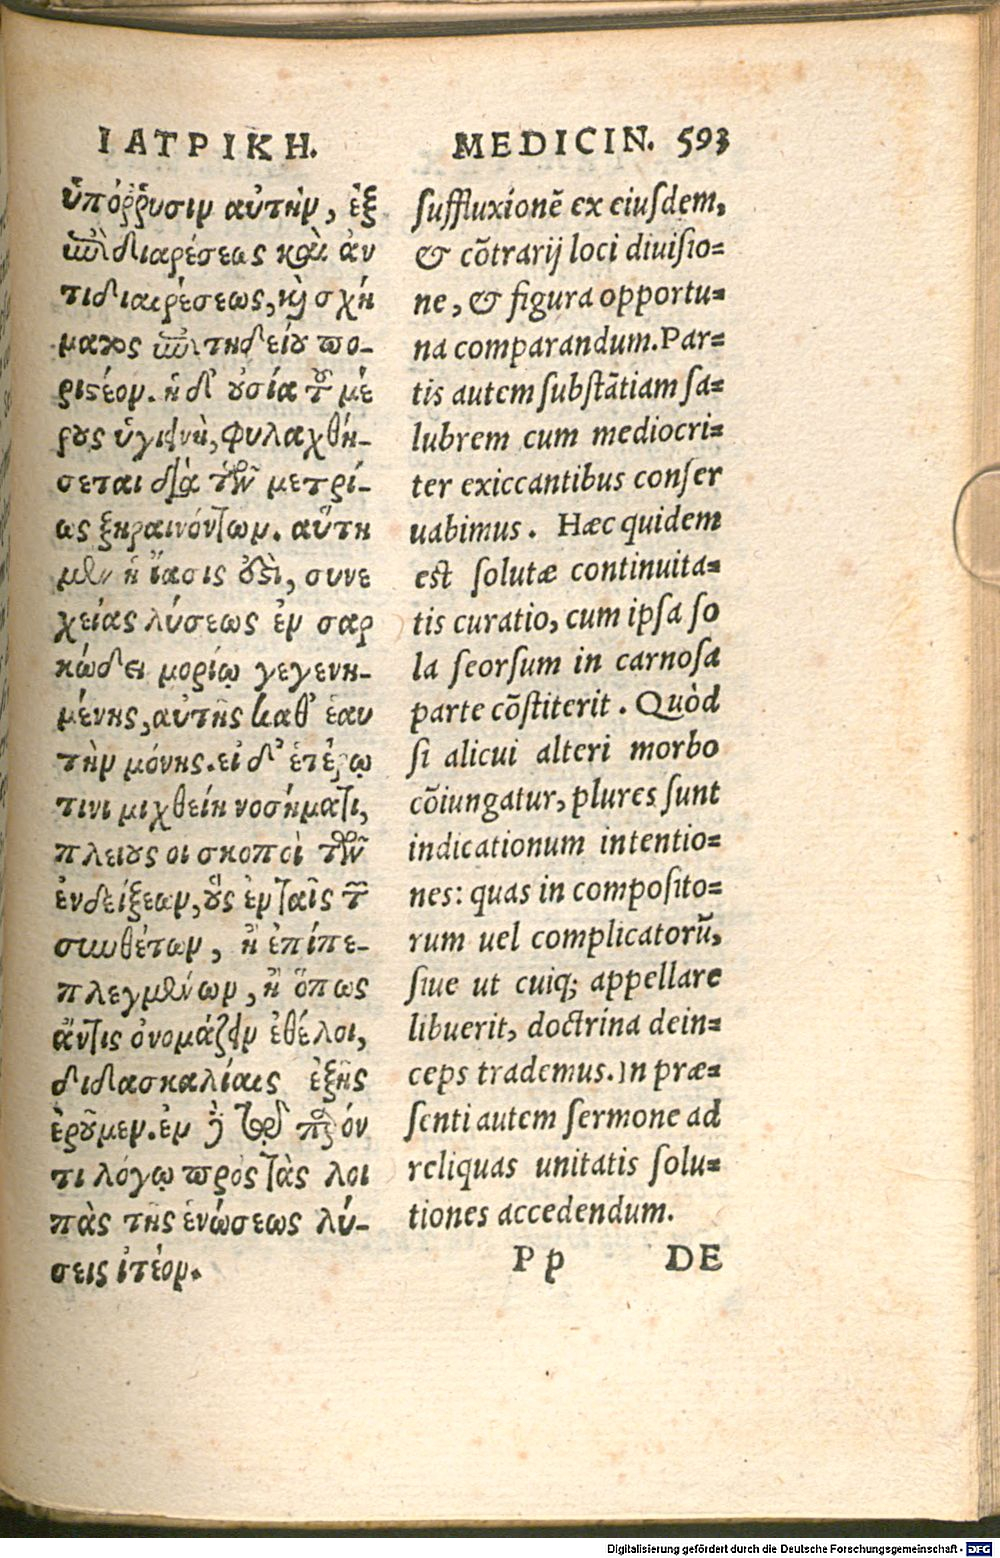 ΙΑΤΡΙΚΗ.
ὑπόῤῥυσιν αὐτὴν, ἐξ
ἐπιδιαρέσεως καὶ ἀν
τιδιαιρέσεως, καὶ σχή
ματος ἐπιτηδείου πο-
ριστέον. ἡ δ' οὐσία τοῦ μέ
ρους ὑγιεινὴ, φυλαχθή-
σεται διὰ τῶν μετρί-
ως ξηραινόντων. αὕτη
μὲν ἡ ἴασις ἐστὶ, συνε
χείας λύσεως ἐν σαρ
κώδει μορίῳ γεγενη-
μένης, αὐτῆς καθ' ἑαυ
τὴν μόνης. εἰ δ' ἑτέρῳ
τινι μιχθείη νοσήματι,
πλείους οι σκοποὶ τῶν
ἐνδείξεων, οὓς ἐν ταῖς τῶν
συνθέτων, ἢ ἐπίπε-
πλεγμένων, ἢ ὅπως
ἄν τις ὀνομάζειν ἐθέλοι,
διδασκαλίαις ἑξῆς
ἐροῦμεν. ἐν δὲ τῷ παρόν
τι λόγῳ πρὸς τὰς λοι
πὰς τῆς ἑνώσεως λύ-
σεις ἰτέον.
MEDICIN. 593
suffluxionē ex eiusdem,
& cōtrarij loci diuisio=
ne, & figura opportu=
na comparandum. Par=
tis autem substātiam sa=
lubrem cum mediocri=
ter exiccantibus conser
uabimus. Hæc quidem
est solutæ continuita=
tis curatio, cum ipsa so
la seorsum in carnosa
parte cōstiterit. Quòd
si alicui alteri morbo
cōiungatur, plures sunt
indicationum intentio=
nes: quas in composito=
rum uel complicatorū,
siue ut cuiq; appellare
libuerit, doctrina dein=
ceps trademus. In præ=
senti autem sermone ad
reliquas unitatis solu=
tiones accedendum.
Pp DE
Digitalisierung gefördert durch die Deutsche Forschungsgemeinschaft - DFG